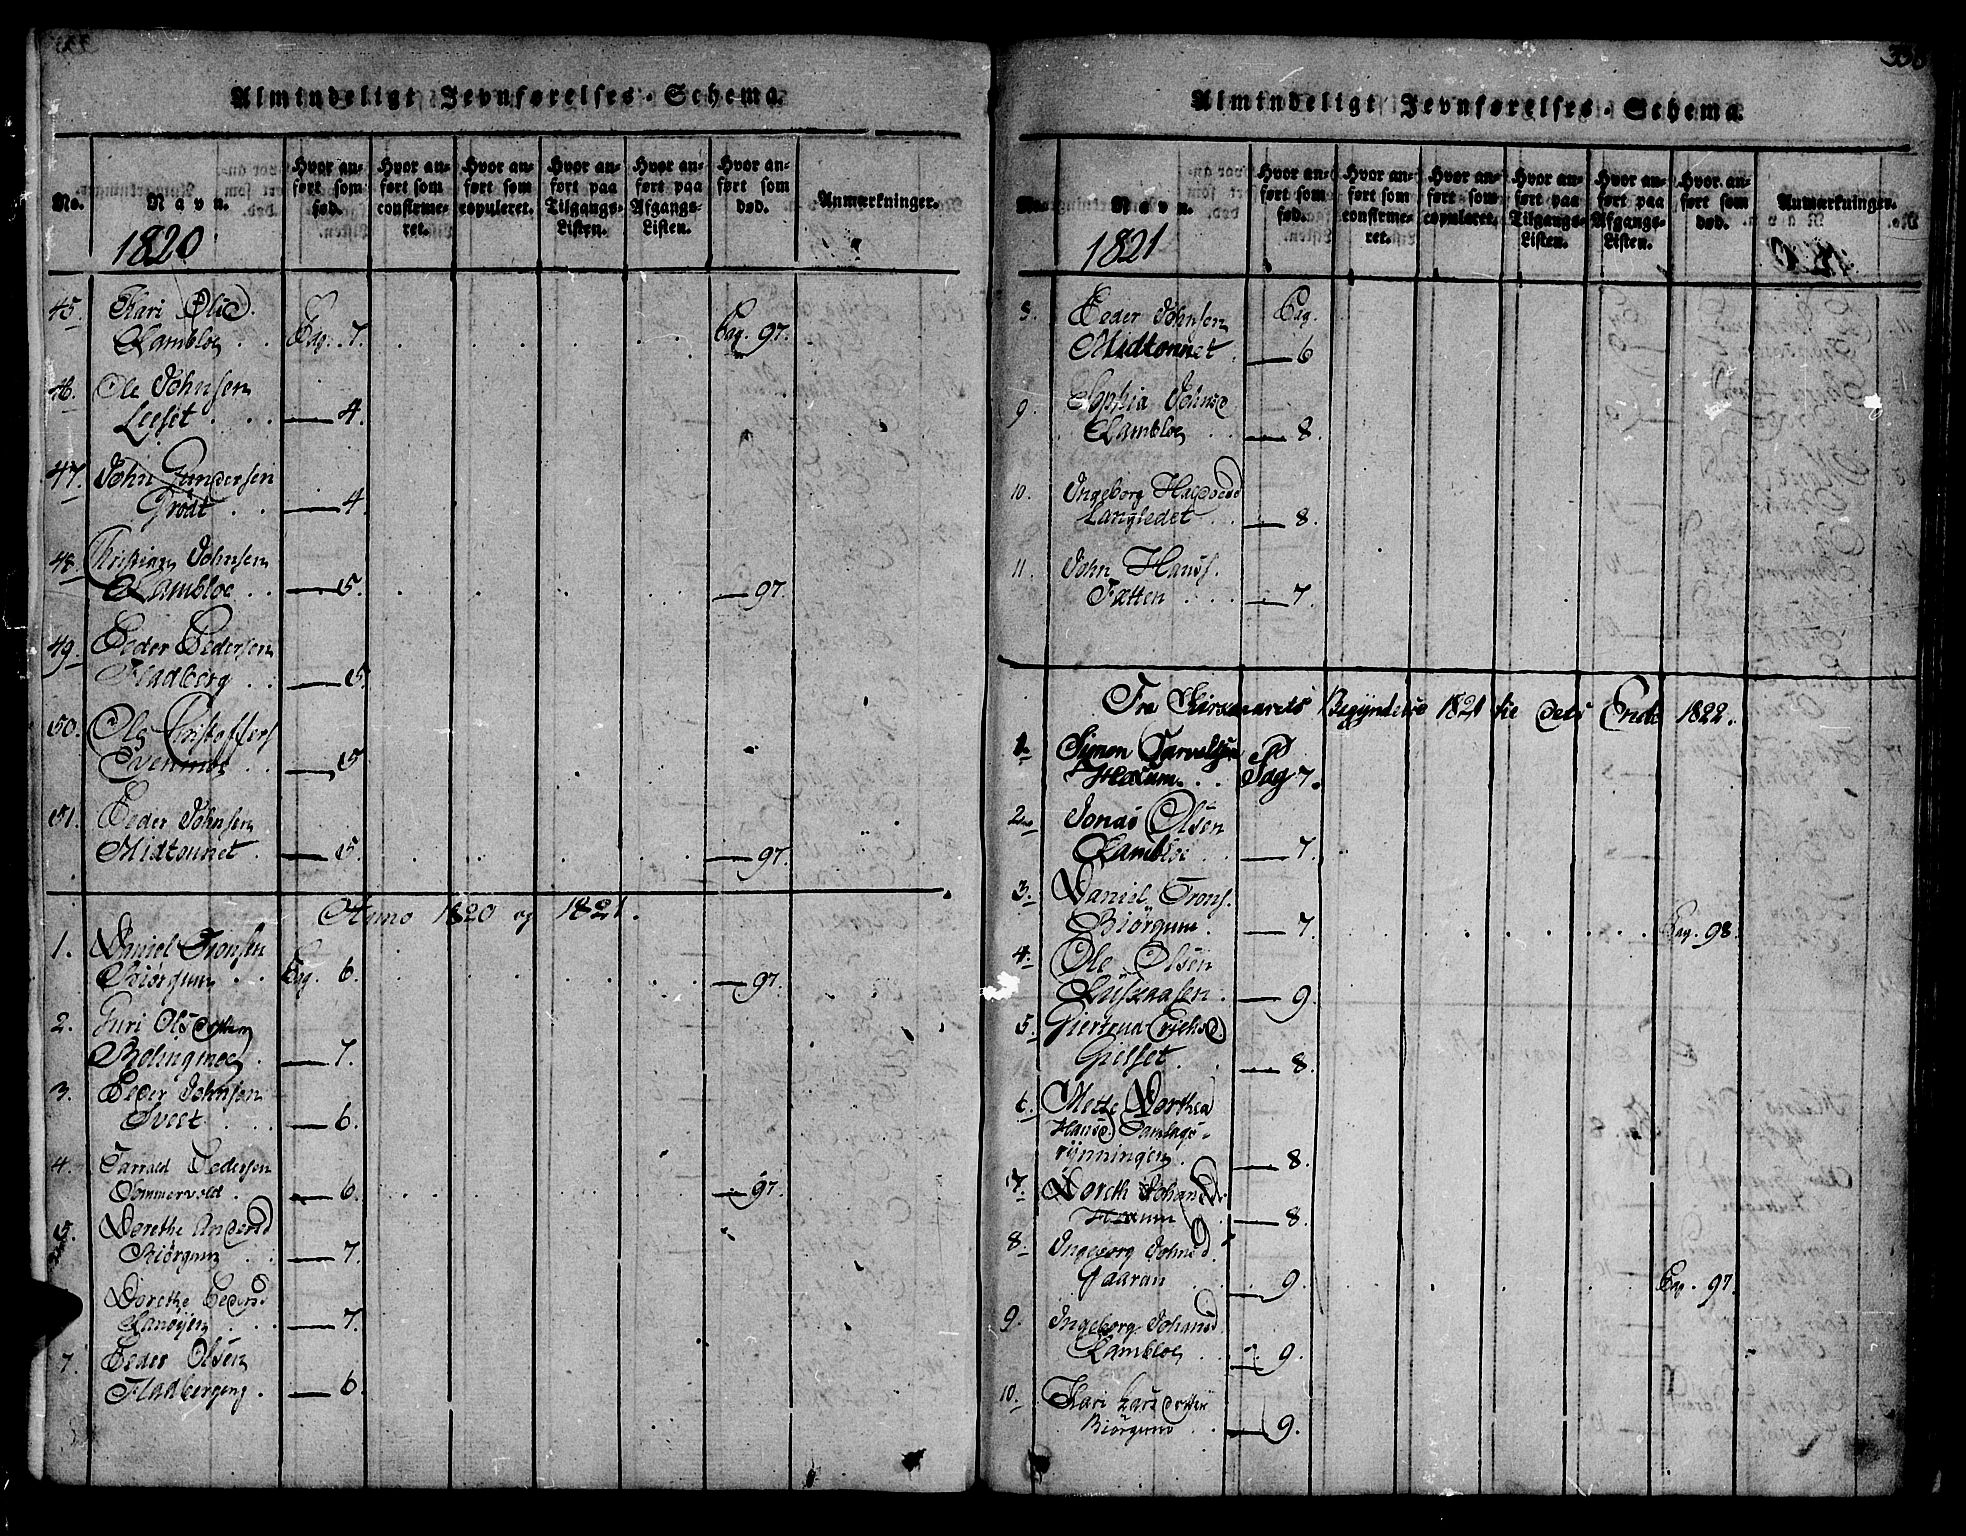 Almindeligt Jevnførelses-Schema.
No.
Navn.
Hvor anført som fød.
Hvor anført som confirmeret.
Hvor anført som copuleret.
Hvor anført paa Tilgangs-Listen.
Hvor anført paa Afgangs-Listen.
Hvor anført som død.
Anmærkninger.
1820
45. Kari Olsd.
Lambloe . . Pag. 7. Pag. 97.
46. Ole Johnsen
Leeset . . . 4.
47. John Gundersen
Grödt . . 4.
48. Christian Johnsen
Lambloe . . 5. 97.
49. Peder Pedersen
Fladberg . . 5.
50. Ole Christoffers
Svenmoe . . 5.
51. Peder Johnsen
Midtonnet . 5. 97.
Anno 1820 og 1821.
1. Daniel Tronsen
Biörgum . . Pag. 6. 97.
2. Guri Olsdatter
. 7.
3. Peder Johnsen
Sveet . . . 6.
4. Tarrald Pedersen
Sommervold . 6. 97.
5. Dorethe Andersd
Biörgum . . 7.
Dorethe Pedersd
Lanöyen . . 7.
7. Peder Olsen
Fladbergeng . 6.
336
Almindeligt Jevnførelses-Schema.
Navn.
Hvor anført som fød.
Hvor anført som confirmeret.
Hvor anført som copuleret.
Hvor anført paa Tilgangs-Listen.
Hvor anført paa Afgangs-Listen.
Hvor anført som død.
Anmærkninger.
1821
8. Peder Johnsen Pag.
Midtonnet . 6
9. Sophia Johnsd
Lambloe . . 8.
10. Ingeborg Halvorsd
Langledet . . 8.
11. John Hansf.
Fætten . . . 7.
Fra Kirkeaarets Begyndelse 1821 til dets Ende 1822.
1. Simon Tarraldsen
Haxum . . Pag 7.
2. Jonas Olsen
Lambloe . . 7.
3. Daniel Trons.
Biörgum . 7. Pag. 98.
4. Ole Olsen
. 9.
5. Giertrud Erichsd.
Gielset . . 8.
6. Mette Dorthea
Hansd.
rynningen . 8.
7. Doreth Johansd
Haxum 8.
8. Ingeborg Johnsd
Gaaran . . 9. Pag. 97.
9. Ingeborg Johansd
Lambloe . . 9.
10. Kari Larsdatter
Biörgum . . 9.